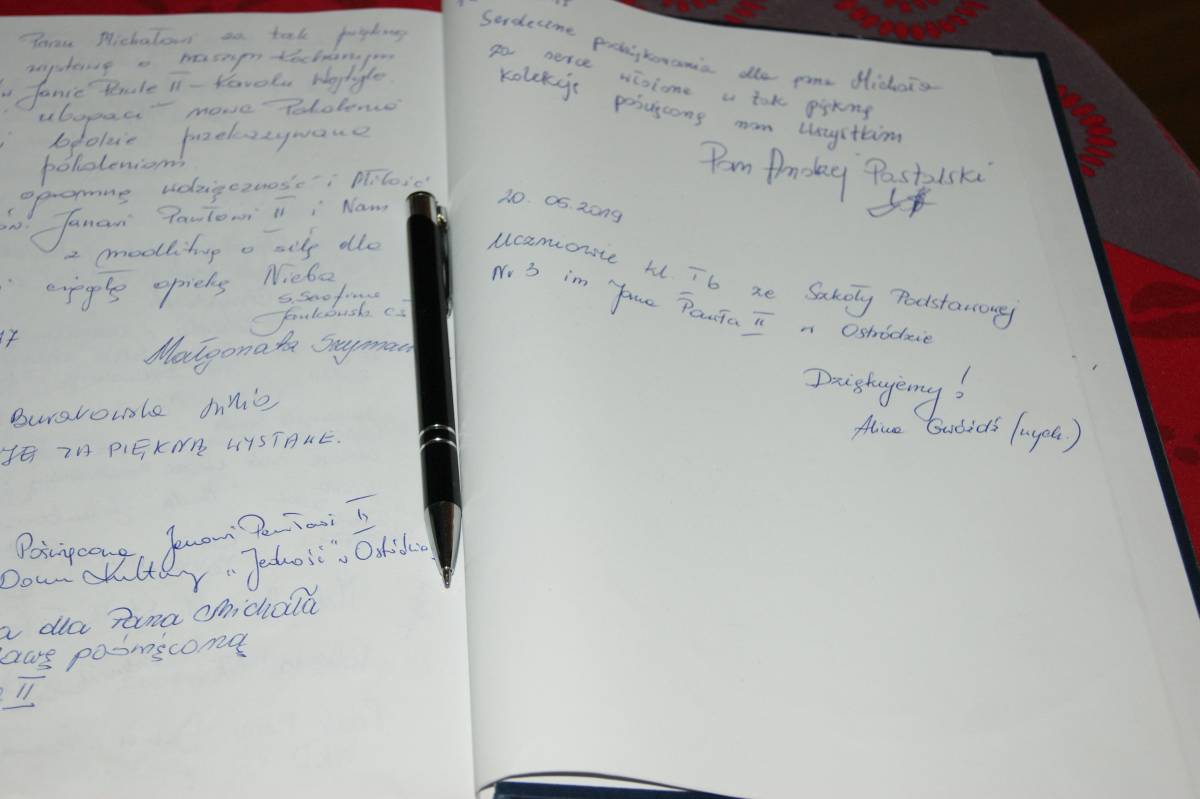 Panu Michałowi za tak piękną
wystawę o naszym Kochanym
Janie Pawle II - Karolu Wojtyle.
ubogaci nowe Pokolenia
i będzie przekazywana
pokoleniom
ogromną wdzięczność i Miłość
Janowi Pawłowi II i Nam
z modlitwą o siłę dla
i ciągłą opiekę Nieba
s. Serafina
Jankowska
17
Małgorzata Szyman
Burakowska
JĘ ZA PIĘKNĄ WYSTAWĘ.
Poświęcona Janowi Pawłowi II
Domu Kultury „Jedność" w Ostródzie
a dla Pana Michała
awę poświęconą
II
Serdeczne podziękowania dla pana Michała
za serce włożone w tak piękną
kolekcję poświęconą nam wszystkim
Pan Andrzej Pastalski
20.05.2019
Uczniowie kl. I b ze Szkoły Podstawowej
Nr 3 im Jana Pawła II w Ostródzie
Dziękujemy!
Alina Gwóźdź (wych.)